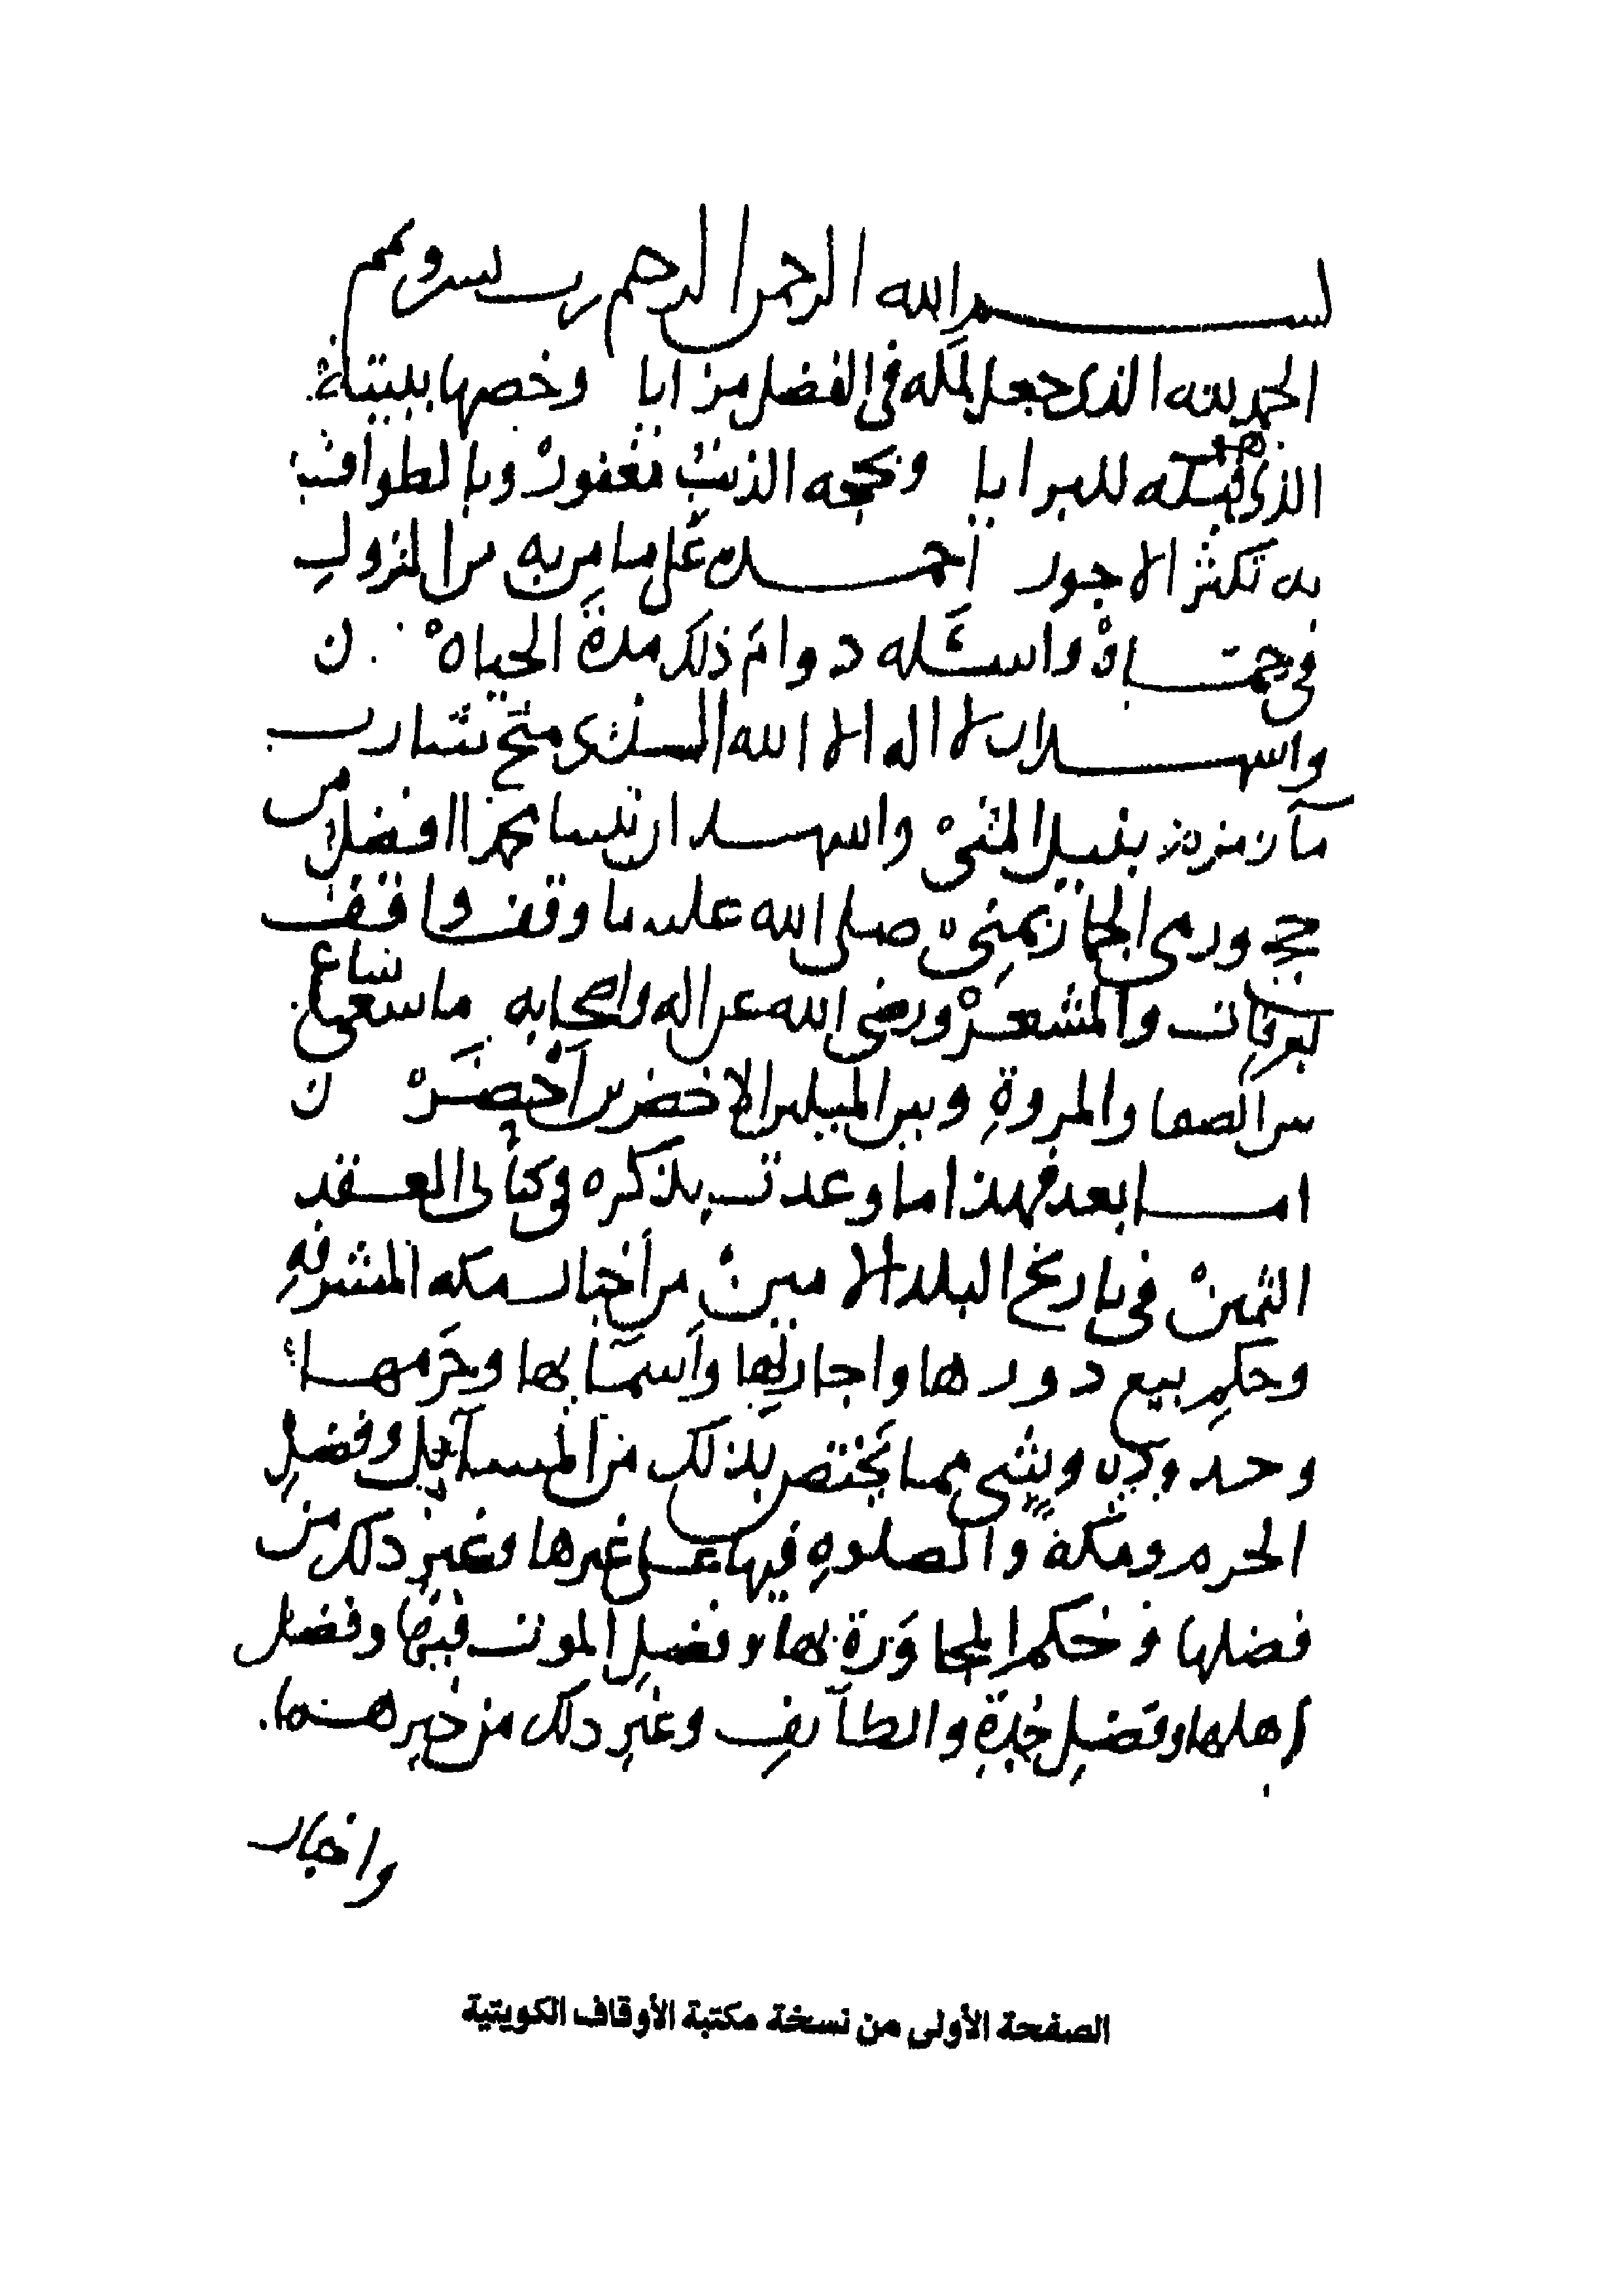 بسم الله الرحمن الرحيم رب يسر وتمم
الحمد لله الذي جعل لمكة في الفضل مزايا وخصها ببيته
الذي هو قبلة للبرايا وبحجه الذنب مغفور وبالطواف
به تكثر الاجور احمده على ما من به من النزول
في حماه واسئله دوام ذلك مدة الحياة
واشهد ان لا اله الا الله الذي منح شارب
مآء زمزم بنيل المنى واشهد ان نبينا محمدا افضل من
حج ورمى الجمار بمنى صلى الله عليه ما وقف واقف
بعرفات والمشعر ورضي الله عن اله واصحابه ما سعى ساع
بين الصفا والمروة وبين الميلين الاخضرين
امـا بعد فهذا ما وعدت بذكره في كتابى العقد
الثمين في تاريخ البلد الامين من أخبار مكه المشرفة
وحكم بيع دورها واجارتها وأسمآيها وحرمها
وحدوده وشي مما يختص بذلك من المسآيل وفضل
الحرم ومكة والصلوة فيها على غيرها وغير ذلك من
فضلها وحكم المجاورة بها وفضل الموت فيها وفضل
اهلها وفضل جدة والطآيف وغير ذلك من خبرهما
واخبار
الصفحة الأولى من نسخة مكتبة الأوقاف الكويتية